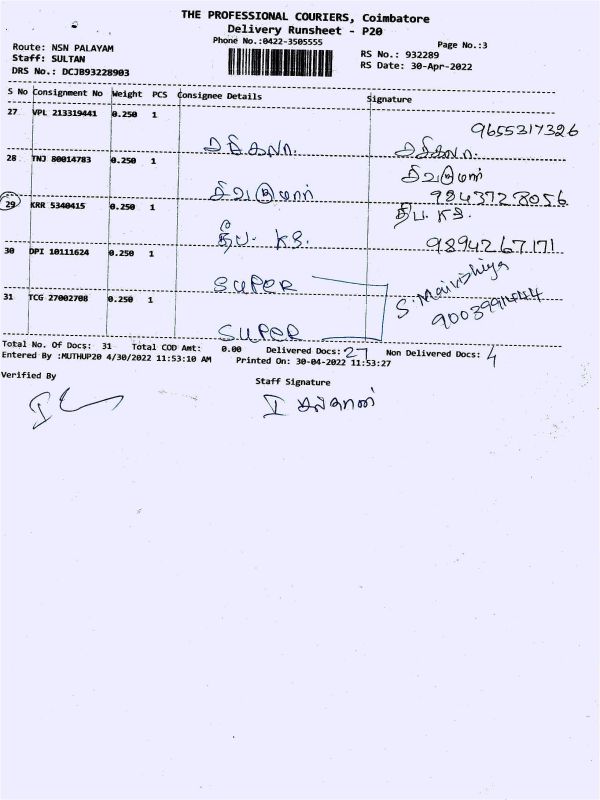 THE PROFESSIONAL COURIERS, Coimbatore
Delivery Runsheet - P20
Phone No.:0422-3505555
Page No.:3
Route: NSN PALAYAM
RS No.: 932289
Staff: SULTAN
RS Date: 30-Apr-2022
DRS No.: DCJB93228903
S No Consignment No Weight PCS Consignee Details Signature
27 VPL 213319441 0.250 1
9655317326
சசிகலா. சசிகலா.
28 TNJ 80014783 0.250 1
சிவகுமார்
சிவகுமார் 9843728056
29 KRR 5340415 0.250 1
தீப. KS.
தீப. KS. 9894267171
30 DPI 10111624 0.250 1
SUPER
31 TCG 27002708 0.250 1
SUPER
Total No. Of Docs: 31 Total COD Amt: 0.00 Delivered Docs: 27 Non Delivered Docs: 4
Entered By :MUTHUP20 4/30/2022 11:53:10 AM Printed On: 30-04-2022 11:53:27
Verified By
Staff Signature
I சுல்தான்